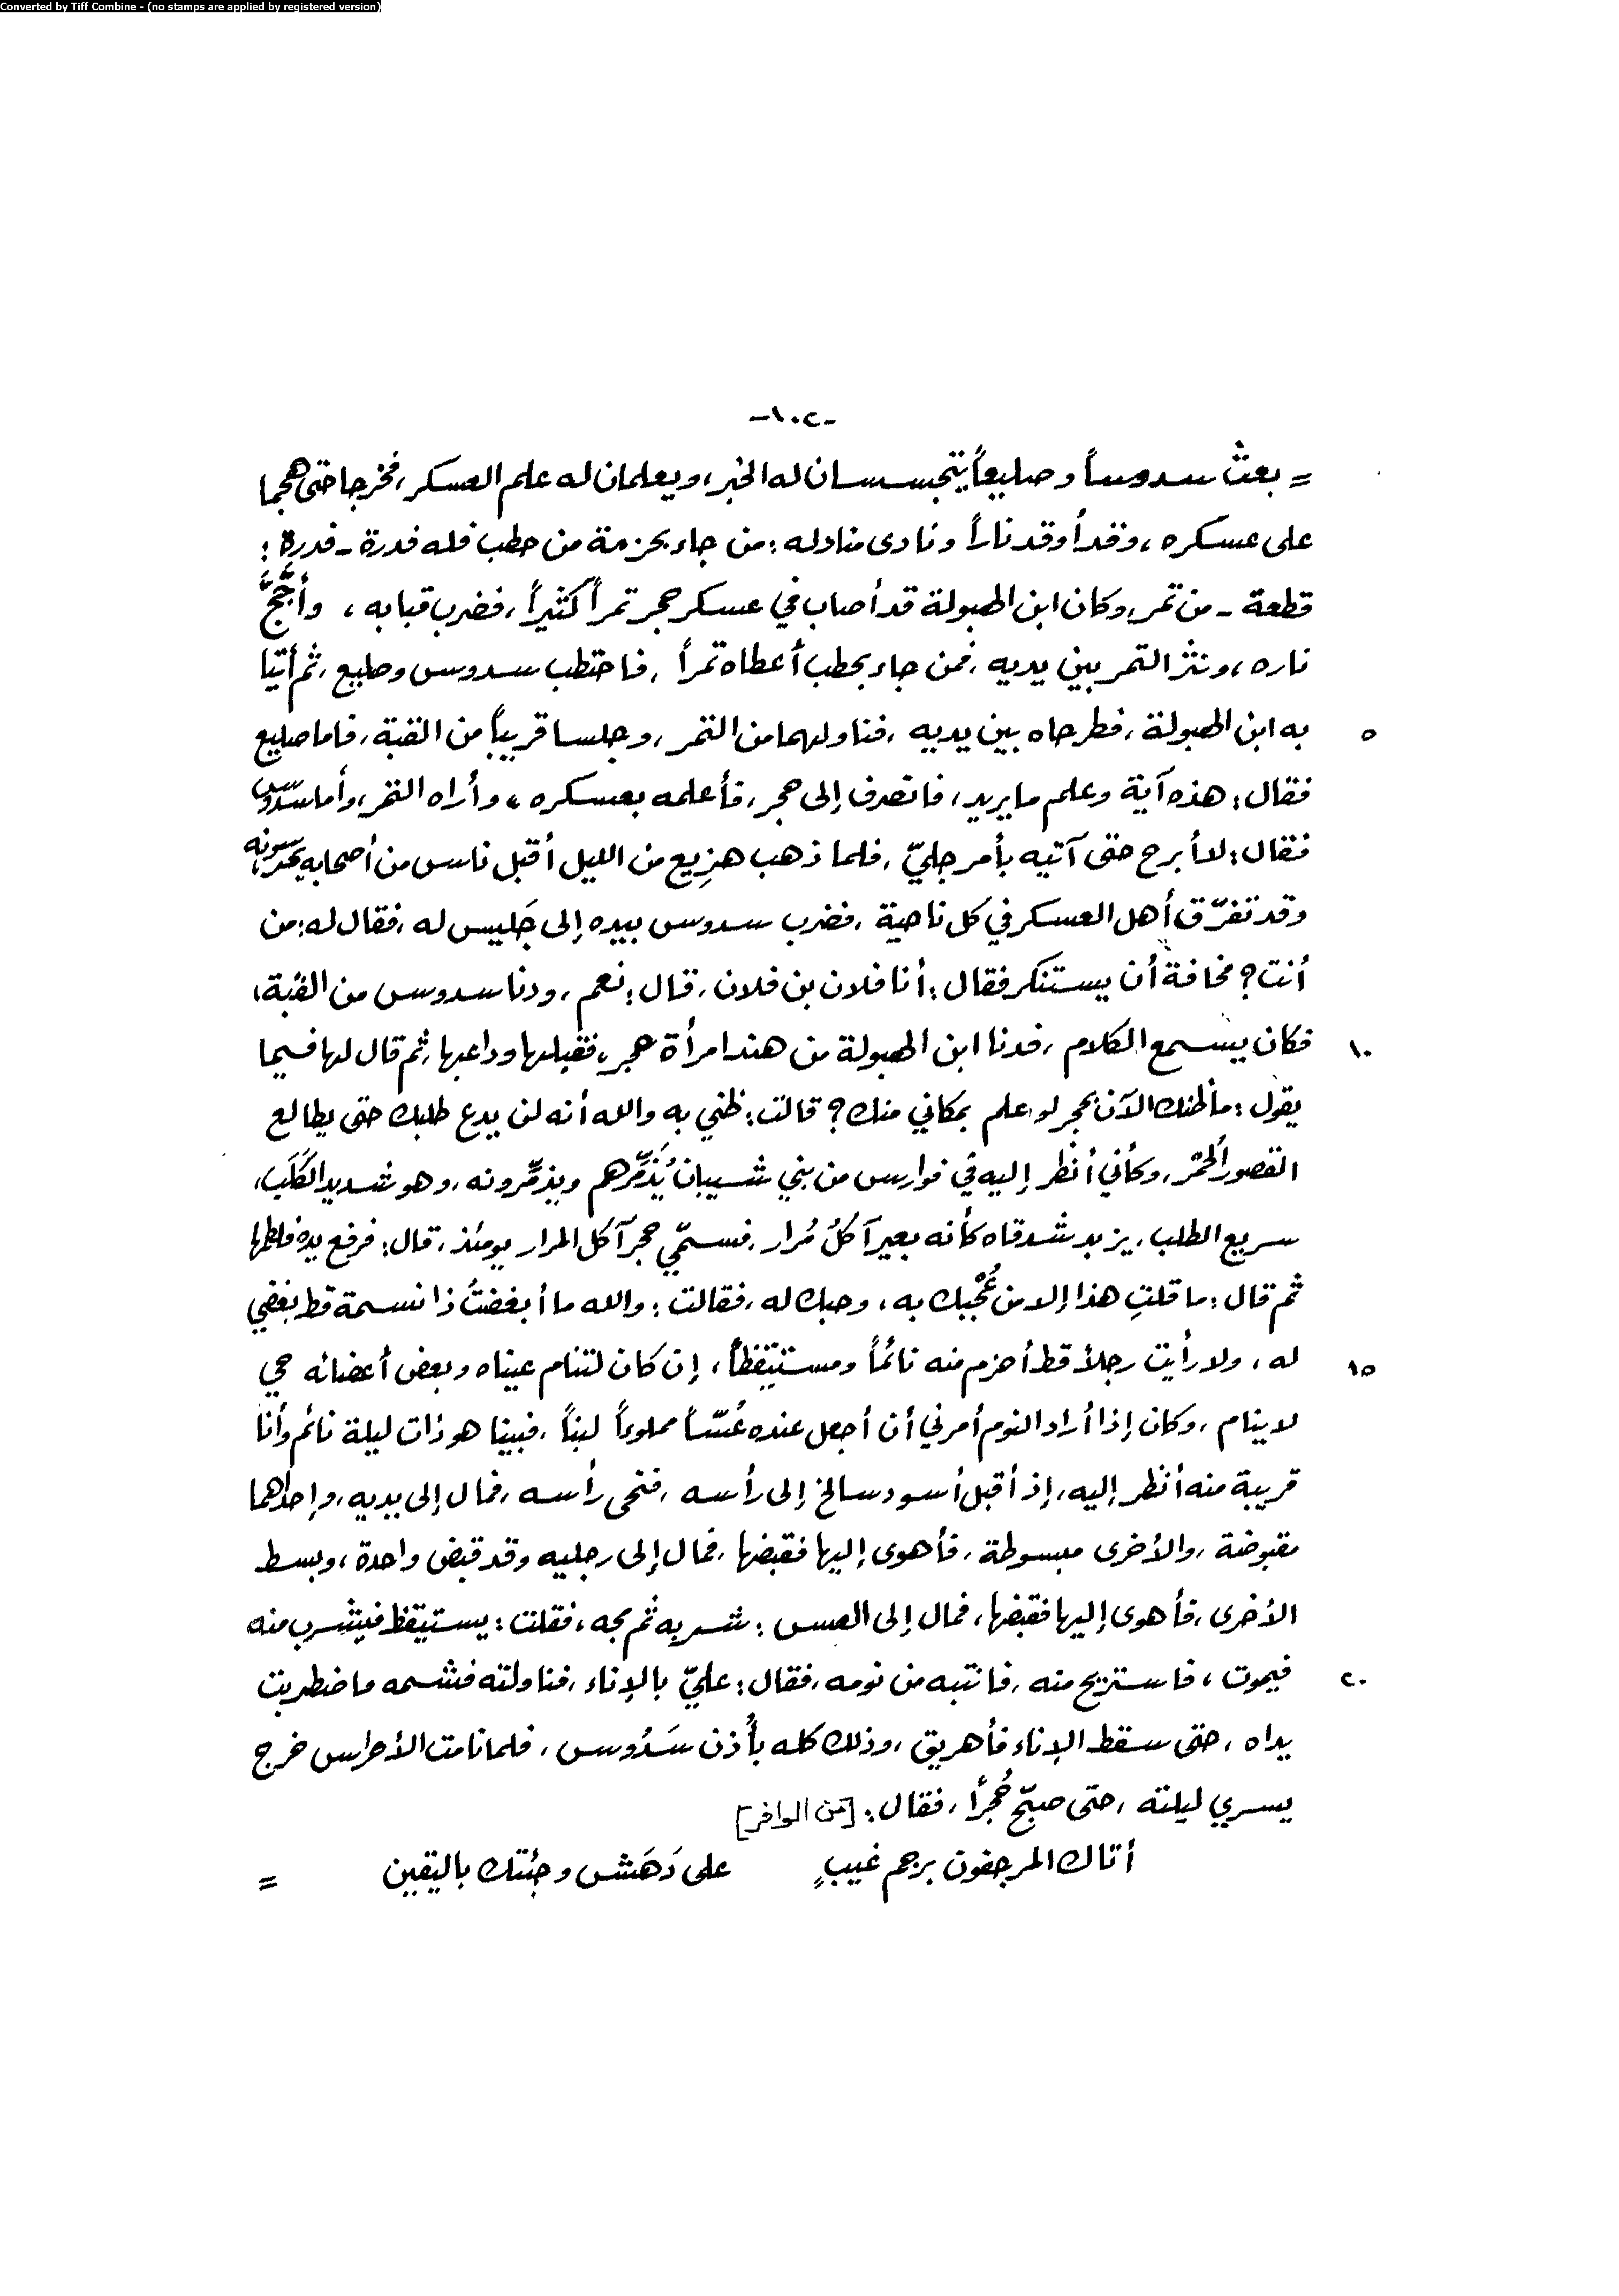 Converted by Tiff Combine - (no stamps are applied by registered version)
-١٠٢-
= بعث سدوساً وصليعاً يتجسسان له الخبر، ويعلمان له علم العسكر، فخرجا حتى هجما
على عسكره، وقد أوقد ناراً ونادى مناد له: من جاء بحزمة من حطب فله فدرة - فدرة:
قطعة - من تمر، وكان ابن الهبولة قد أصاب في عسكر حجر تمراً كثيراً، فضرب قبابه، وأجَّجَ
ناره، ونثر التمر بين يديه، فمن جاء بحطب أعطاه تمراً، فاحتطب سدوس وصليع، ثم أتيا
٥ به ابن الهبولة، فطرحاه بين يديه، فناولهما من التمر، وجلسا قريباً من القبة، فاما صليع
فقال: هذه آية وعلم ما يريد، فانصرف إلى حجر، فأعلمه بعسكره، وأراه التمر، وأما سدوس
فقال: لا أبرح حتى آتيه بأمر جليّ، فلما ذهب هزِيع من الليل أقبل ناس من أصحابه يحرسونه،
وقد تفرّق أهل العسكر في كل ناحية، فضرب سدوس بيده إلى جَليس له، فقال له: من
أنت؟ مخافة أن يستنكر فقال: أنا فلان بن فلان، قال: نعم، ودنا سدوس من القبة،
١٠ فكان يسمع الكلام، فدنا ابن الهبولة من هند امرأة حجر، فقبلها وداعبها، ثم قال لها فيما
يقول: ما ظنك الآن بحجر لو علم بمكاني منك؟ قالت: ظني به والله أنه لن يدع طلبك حتى يطالع
القصور الحُمْر، وكأني أنظر إليه في فوارس من بني شيبان يُذَمِّرهم ويذمِّرونه، وهو شديد الكَلَب،
سريع الطلب، يزبد شدقاه كأنه بعير آكلُ مُرار، فسمّي حجر آكل المرار يومئذ، قال: فرفع يده فلطمها
ثم قال: ما قلتِ هذا إلا من عُجْبك به، وحبك له، فقالت: والله ما أبغضتُ ذا نسمة قط بغضي
١٥ له، ولا رأيت رجلاً قط أحزم منه نائماً ومستيقظاً، إن كان لتنام عيناه وبعض أعضائه حي
لا ينام، وكان إذا أراد النوم أمرني أن أجعل عنده عُسّاً مملوءاً لبناً، فبينا هو ذات ليلة نائم وأنا
قريبة منه أنظر إليه، إذ أقبل أسود سالخ إلى رأسه، فنحى رأسه، فمال إلى يديه، وإحداهما
مقبوضة، والأخرى مبسوطة، فأهوى إليها فقبضها، فمال إلى رجليه وقد قبض واحدة، وبسط
الأخرى، فأهوى إليها فقبضها، فمال إلى العس: شربه ثم مجه، فقلت: يستيقظ فيشرب منه
٢٠ فيموت، فاستريح منه، فانتبه من نومه، فقال: عليّ بالإناء، فناولته فشمه ماضطربت
يداه، حتى سقط الإناء فأهريق، وذلك كله بأُذن سَدُوس، فلما نامت الأحراس خرج
يسري ليلته، حتى صبّح حُجراً، فقال: [من الوافر]
أتاك المرجفون برجم غيبٍ على دَهَش وجئتك باليقين =